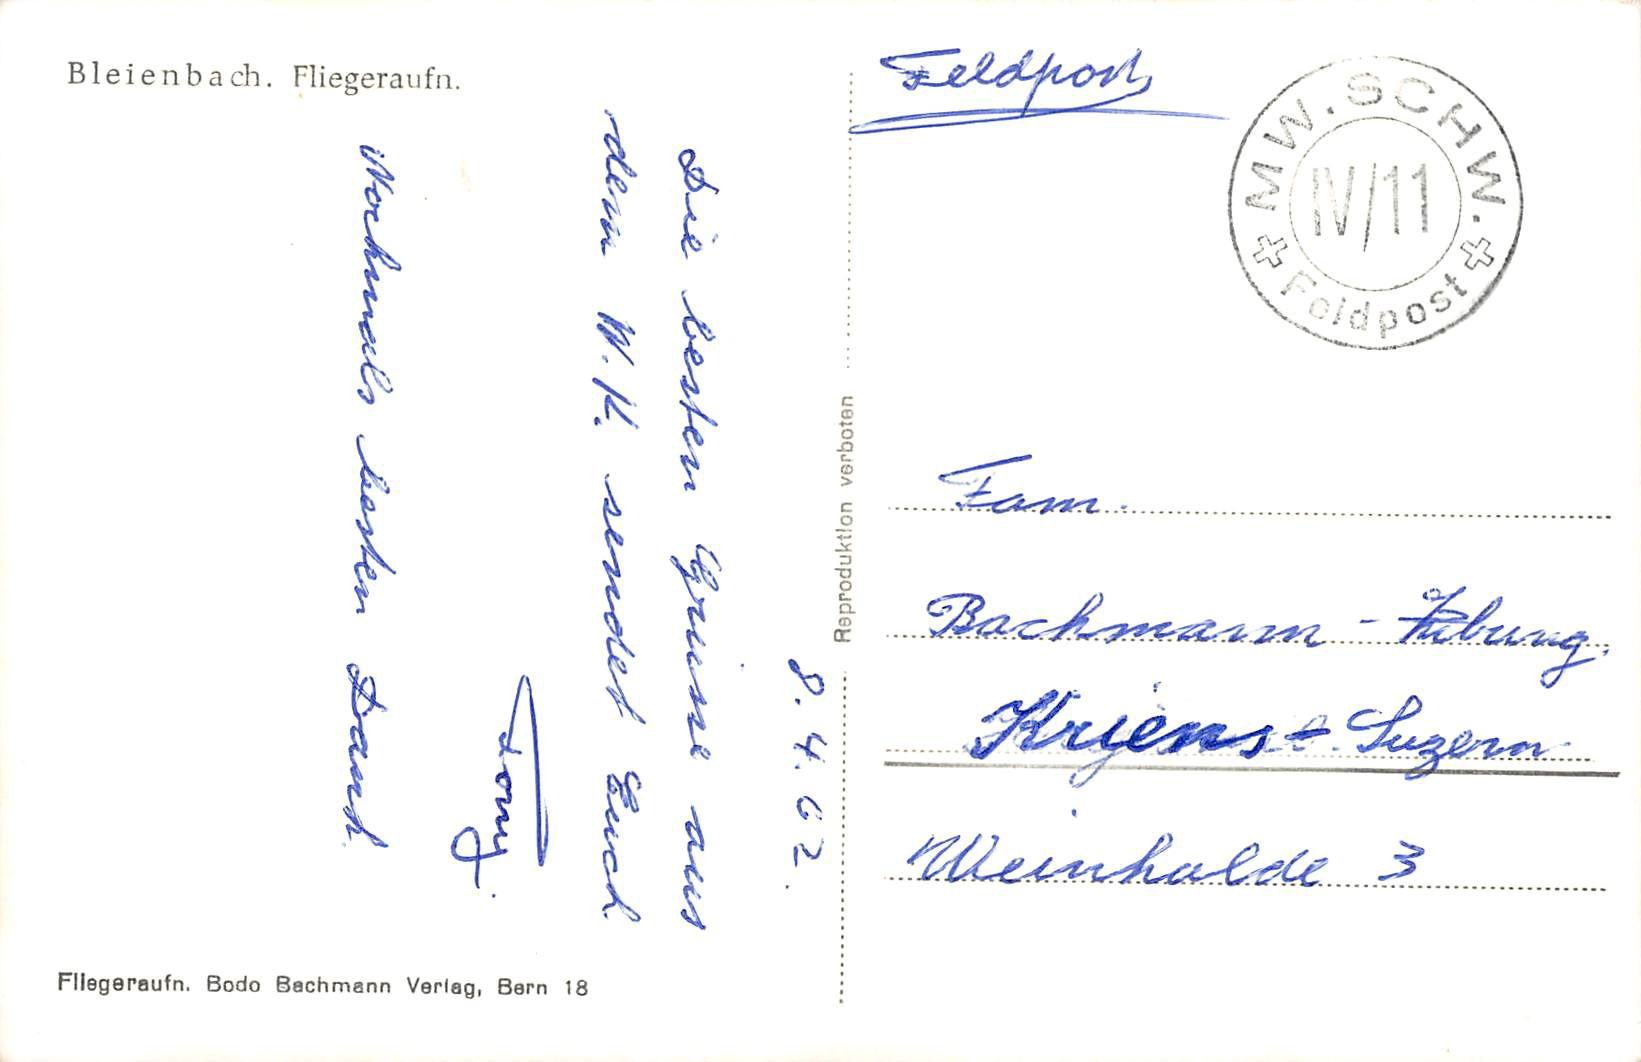 Bleienbach. Fliegeraufn.
8. 4. 62.
Die besten Grüsse aus
dem W.K. sendet Euch
Tony.
Nochmals besten Dank.
Fliegeraufn. Bodo Bachmann Verlag, Bern 18
Reproduktion verboten
Feldpost
MW. SCHW.
IV/11
Feldpost
Fam.
Bachmann -
Kriens - Luzern
Weinhalde 3